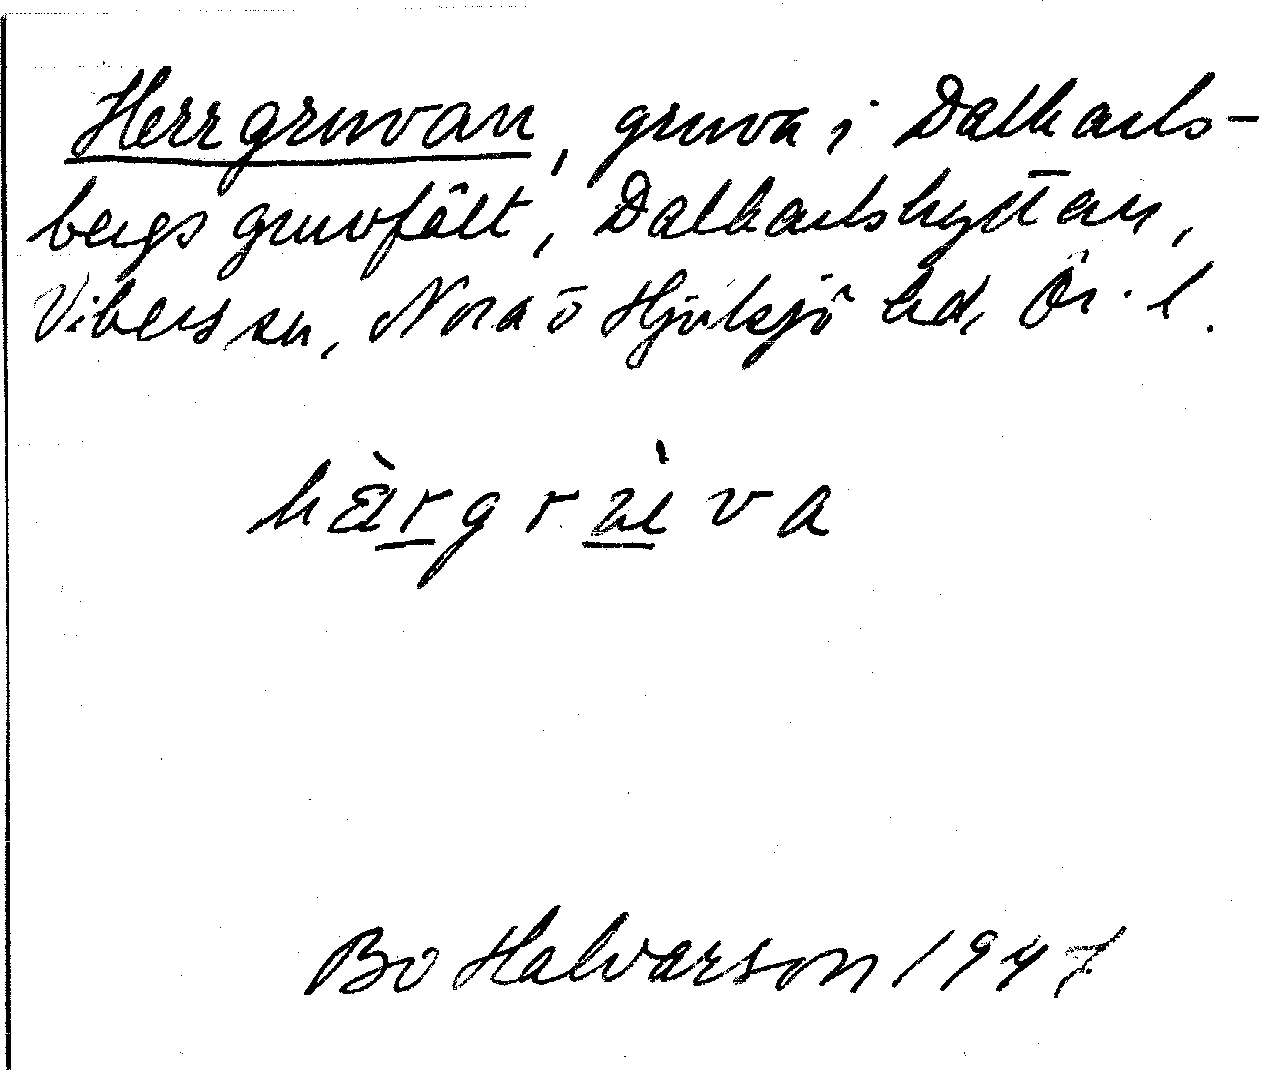 Herrgruvan, gruva i Dalkarls-
bergs gruvfält, Dalkarlshyttan,
Vibers sn, Nora o Hjulsjö hd, Ör. l.
hæ̀rgru̇̀va
Bo Halvarson 1947